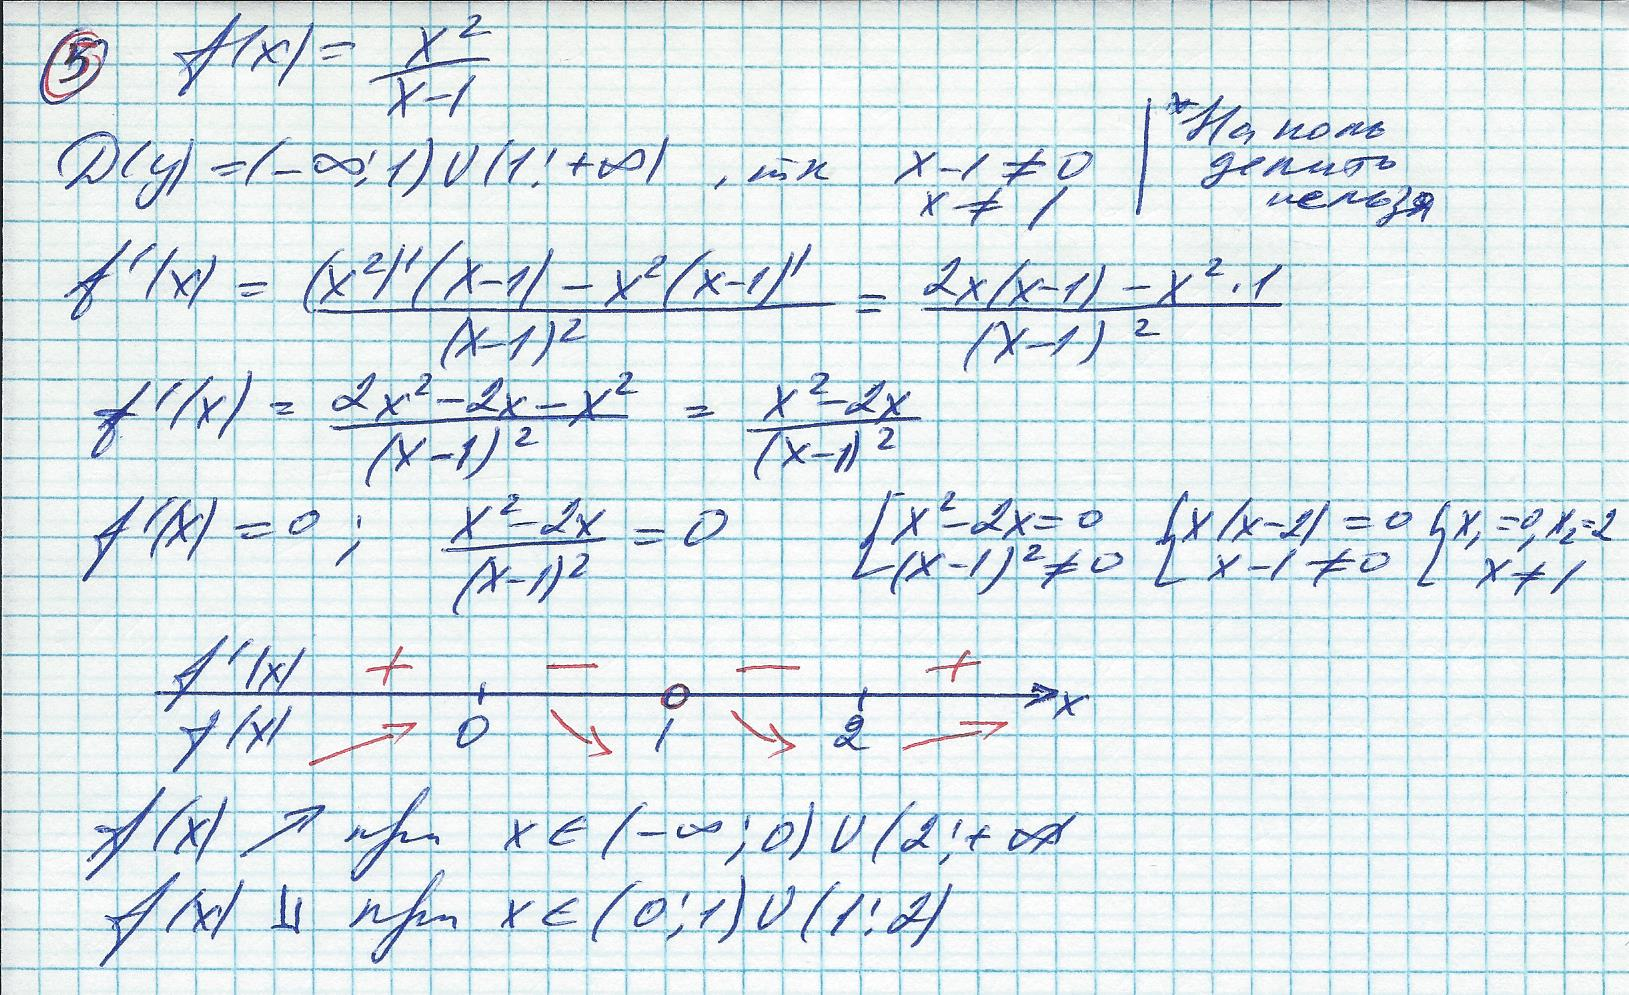 5 f(x) = x²/(x-1)
D(y) = (-∞; 1) ∪ (1; +∞), тк x-1 ≠ 0
x ≠ 1
*На ноль
делить
нельзя
f'(x) = ((x²)'(x-1) - x²(x-1)')/(x-1)² = (2x(x-1) - x²·1)/(x-1)²
f'(x) = (2x²-2x-x²)/(x-1)² = (x²-2x)/(x-1)²
f'(x) = 0; (x²-2x)/(x-1)² = 0 { x²-2x=0 { x(x-2)=0 { x₁=0, x₂=2
(x-1)²≠0 x-1≠0 x≠1
f'(x) + - - +
x
f(x) ↗ 0 ↘ 1 ↘ 2 ↗
f(x) ↗ при x ∈ (-∞; 0) ∪ (2; +∞)
f(x) ↘ при x ∈ (0; 1) ∪ (1; 2)